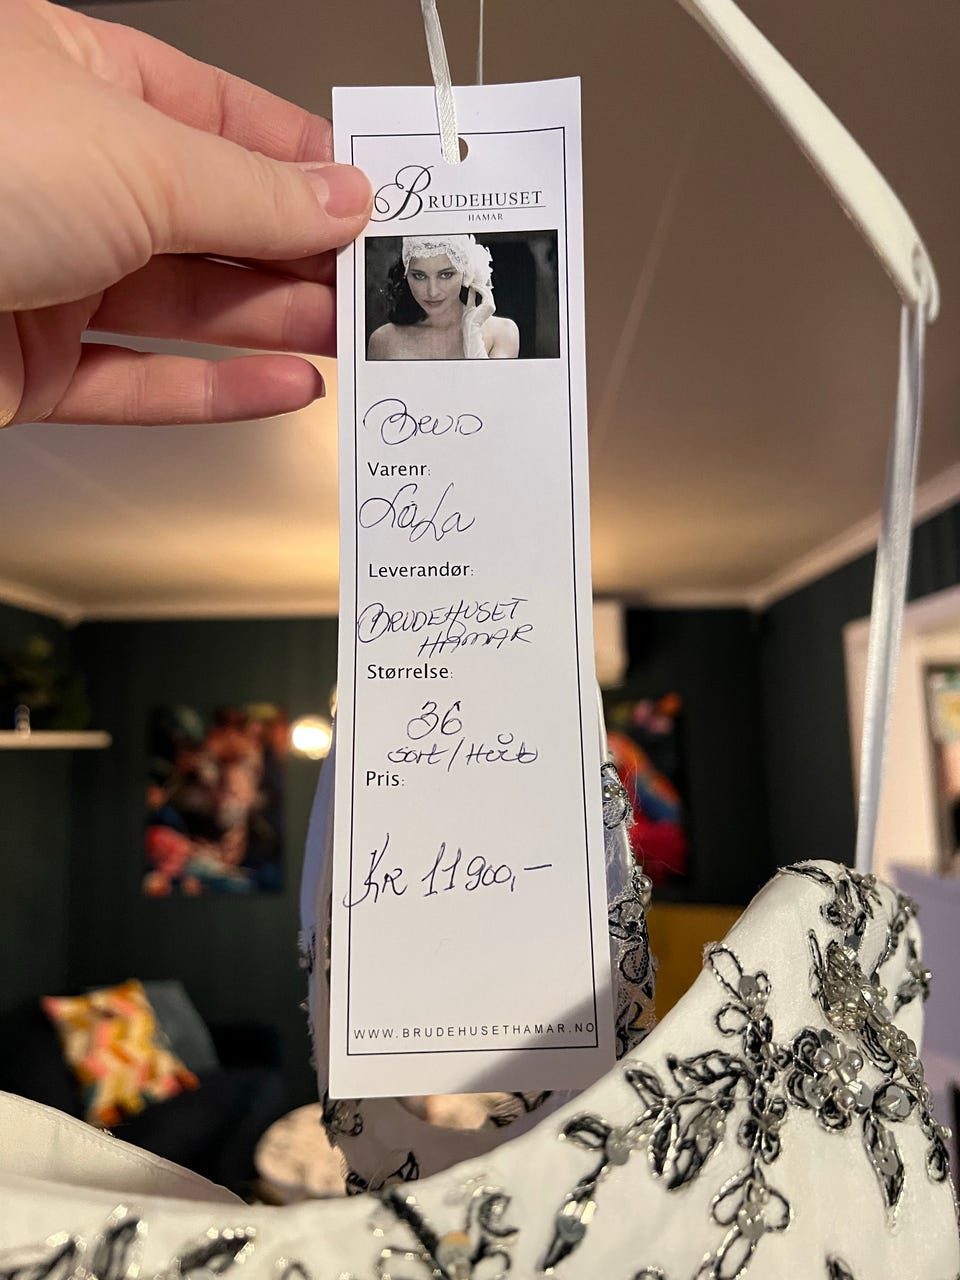 BRUDEHUSET
HAMAR
Brud
Varenr:
LaLa
Leverandør:
BRUDEHUSET
HAMAR
Størrelse:
36
sort/Hvit
Pris:
KR 11900,-
WWW.BRUDEHUSETHAMAR.NO